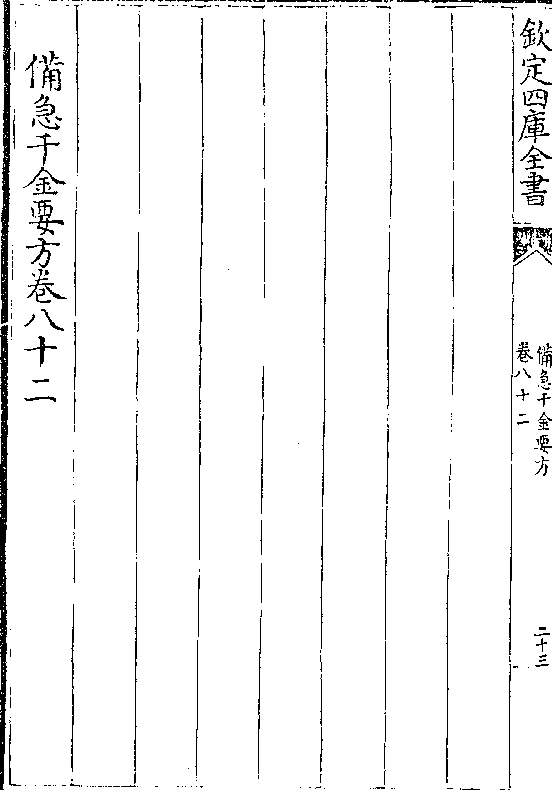 欽定四庫全書
備急千金要方
卷八十二
二十三
備急千金要方卷八十二